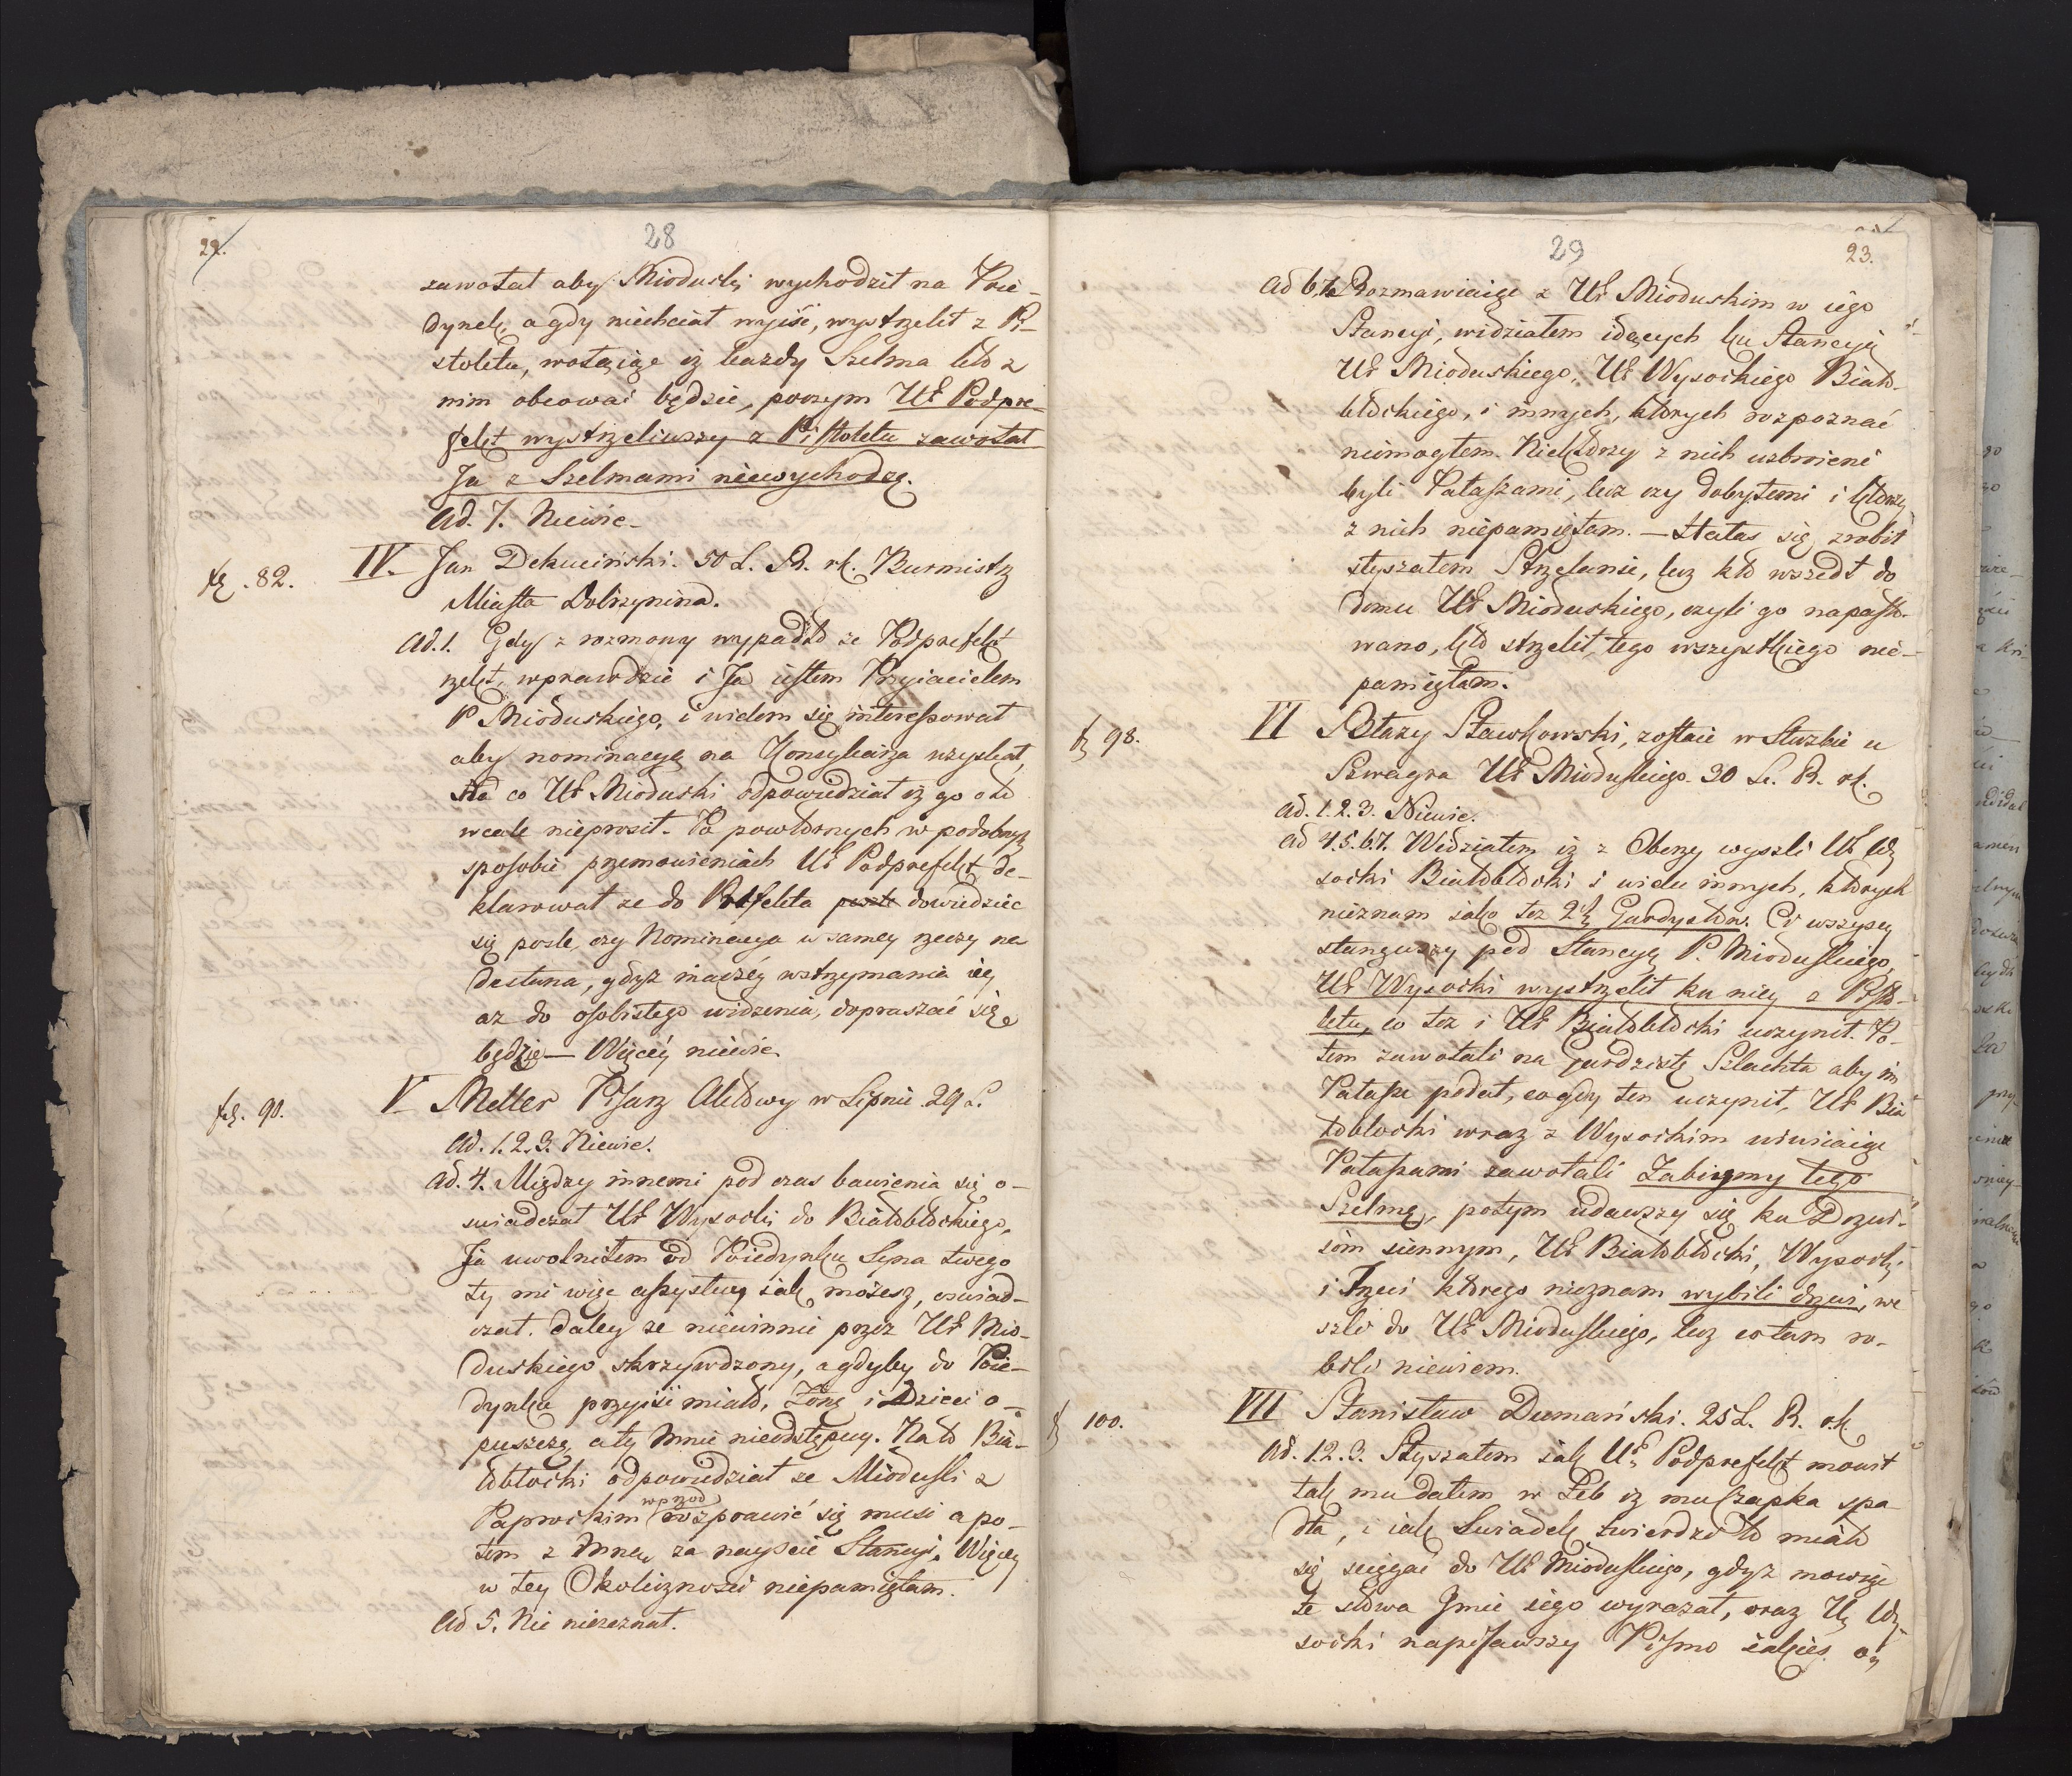 22.
28
zawołał aby Mioduski wychodził na Poie-
dynek, a gdy niechciał wyiść, wystrzelił z Pi-
stoletu, wołaiąc iż każdy Szelma kto z
nim obcować będzie, poczym Ur Podpre-
fekt wystrzeliwszy z Pistoletu zawołał
Ja z Szelmami niewychodzę.
Ad. 7. Niewie-
fol. 82. IV. Jan Dekuciński. 50 L. R. rk. Burmistrz
Miasta Dobrzynina.
Ad. 1. Gdy z rozmowy wypadło że Podprefekt
rzekł, wprawdzie i Ja iestem Przyiacielem
P Mioduskiego, i wielem się interessował
aby nominacyą na Konsyliarza uzyskał,
Na co Ur Mioduski odpowiedział iż go o to
wcale nieprosił. Po powtórnych w podobnym
sposobie przemówieniach Ur Podprefekt de-
klarował że do Prefekta dowiedzieć
się pośle, czy Nominacya w samey rzeczy na
desłana, gdyż inaczéy wstrzymania iey
aż do osobistego widzenia, dopraszać się
będzie — Więcéy niewie.
fol. 90. V Meller Pisarz Aktowy w Lipnie 29 L.
Ad. 1. 2. 3. Niewie.
Ad. 4. Między innemi pod czas bawienia się o-
swiadczał Ur Wysocki do Białobłockiego,
Ja uwolniłem od Poiedynku Syna twego
ty mi więc assystuy iak możesz, oswiad-
czał. daley że niewinnie przez Ur Mio-
duskiego skrzywdzony, a gdyby do Poie-
dynku przyiść miało, Żonę i Dzieci o-
puszczę, a ty Mnie nieodstępuy. Na to Bia-
łobłocki odpowiedział że Mioduski z
Paprockim wprzod rozprawić się musi a po-
tem z Mną za nayście Stancyi. Więcey
w tey Okoliczności niepamiętam.
Ad 5. Nic niezeznał.
29
23.
Ad 6, 7. Rozmawiaiąc z Ur Mioduskim w iego
Stancyi, widziałem idących ku Stancyi
Ur Mioduskiego, Ur Wysockiego Biało-
błockiego, i innych, których rozpoznać
niemogłem. Niektórzy z nich uzbroieni
byli Pałaszami, lecz czy dobytemi i którzy
z nich niepamiętam. — Hałas się zrobił
słyszałem Strzelanie, lecz kto wszedł do
domu Ur Mioduskiego, czyli go napasto-
wano, kto strzelił, tego wszystkiego nie-
pamiętam.
f 98. VI Błaży Sławkowski, zostaie w Służbie u
Szwagra Ur Mioduskiego. 30 L. R. rk.
Ad. 1. 2. 3. Niewie.
Ad 4. 5. 6. 7. Widziałem iż z Oberży wyszli Ur Wy
socki Białobłocki i wielu innych, których
nieznam iako też 2ch Gwardystów. Ci wszyscy
stanąwszy pod Stancyą P. Mioduskiego,
Ur Wysocki wystrzelił ku niey z Pisto-
letu, co też i Ur Białobłocki uczynił. Po-
tem zawołali na Gwardzistę Szlachta aby im
Pałasze podał, co gdy ten uczynił, Ur Bia
łobłocki wraz z Wysockim wiwiaiąc
Pałaszami zawołali Zabiymy tego
Szelmę, potym udawszy się ku Drzwi-
óm siennym, Ur Białobłocki, Wysocki
i Trzeci którego nieznam wybili drzwi, we
szli do Ur Mioduskiego, lecz co tam ro-
bili niewiem.
f 100. VII Stanisław Dumański. 25 L. R. rk
Ad. 1. 2. 3. Słyszałem iak Ur Podprefekt mówił
tak mu dałem w Łeb iż mu czapka spa
dła, i iak Świadek twierdzi to miało
się sciągać do Ur Mioduskiego, gdyż mówiąc
te słowa Jmie iego wyrażał, oraz Ur Wy-
socki napisawszy Pismo iakieś